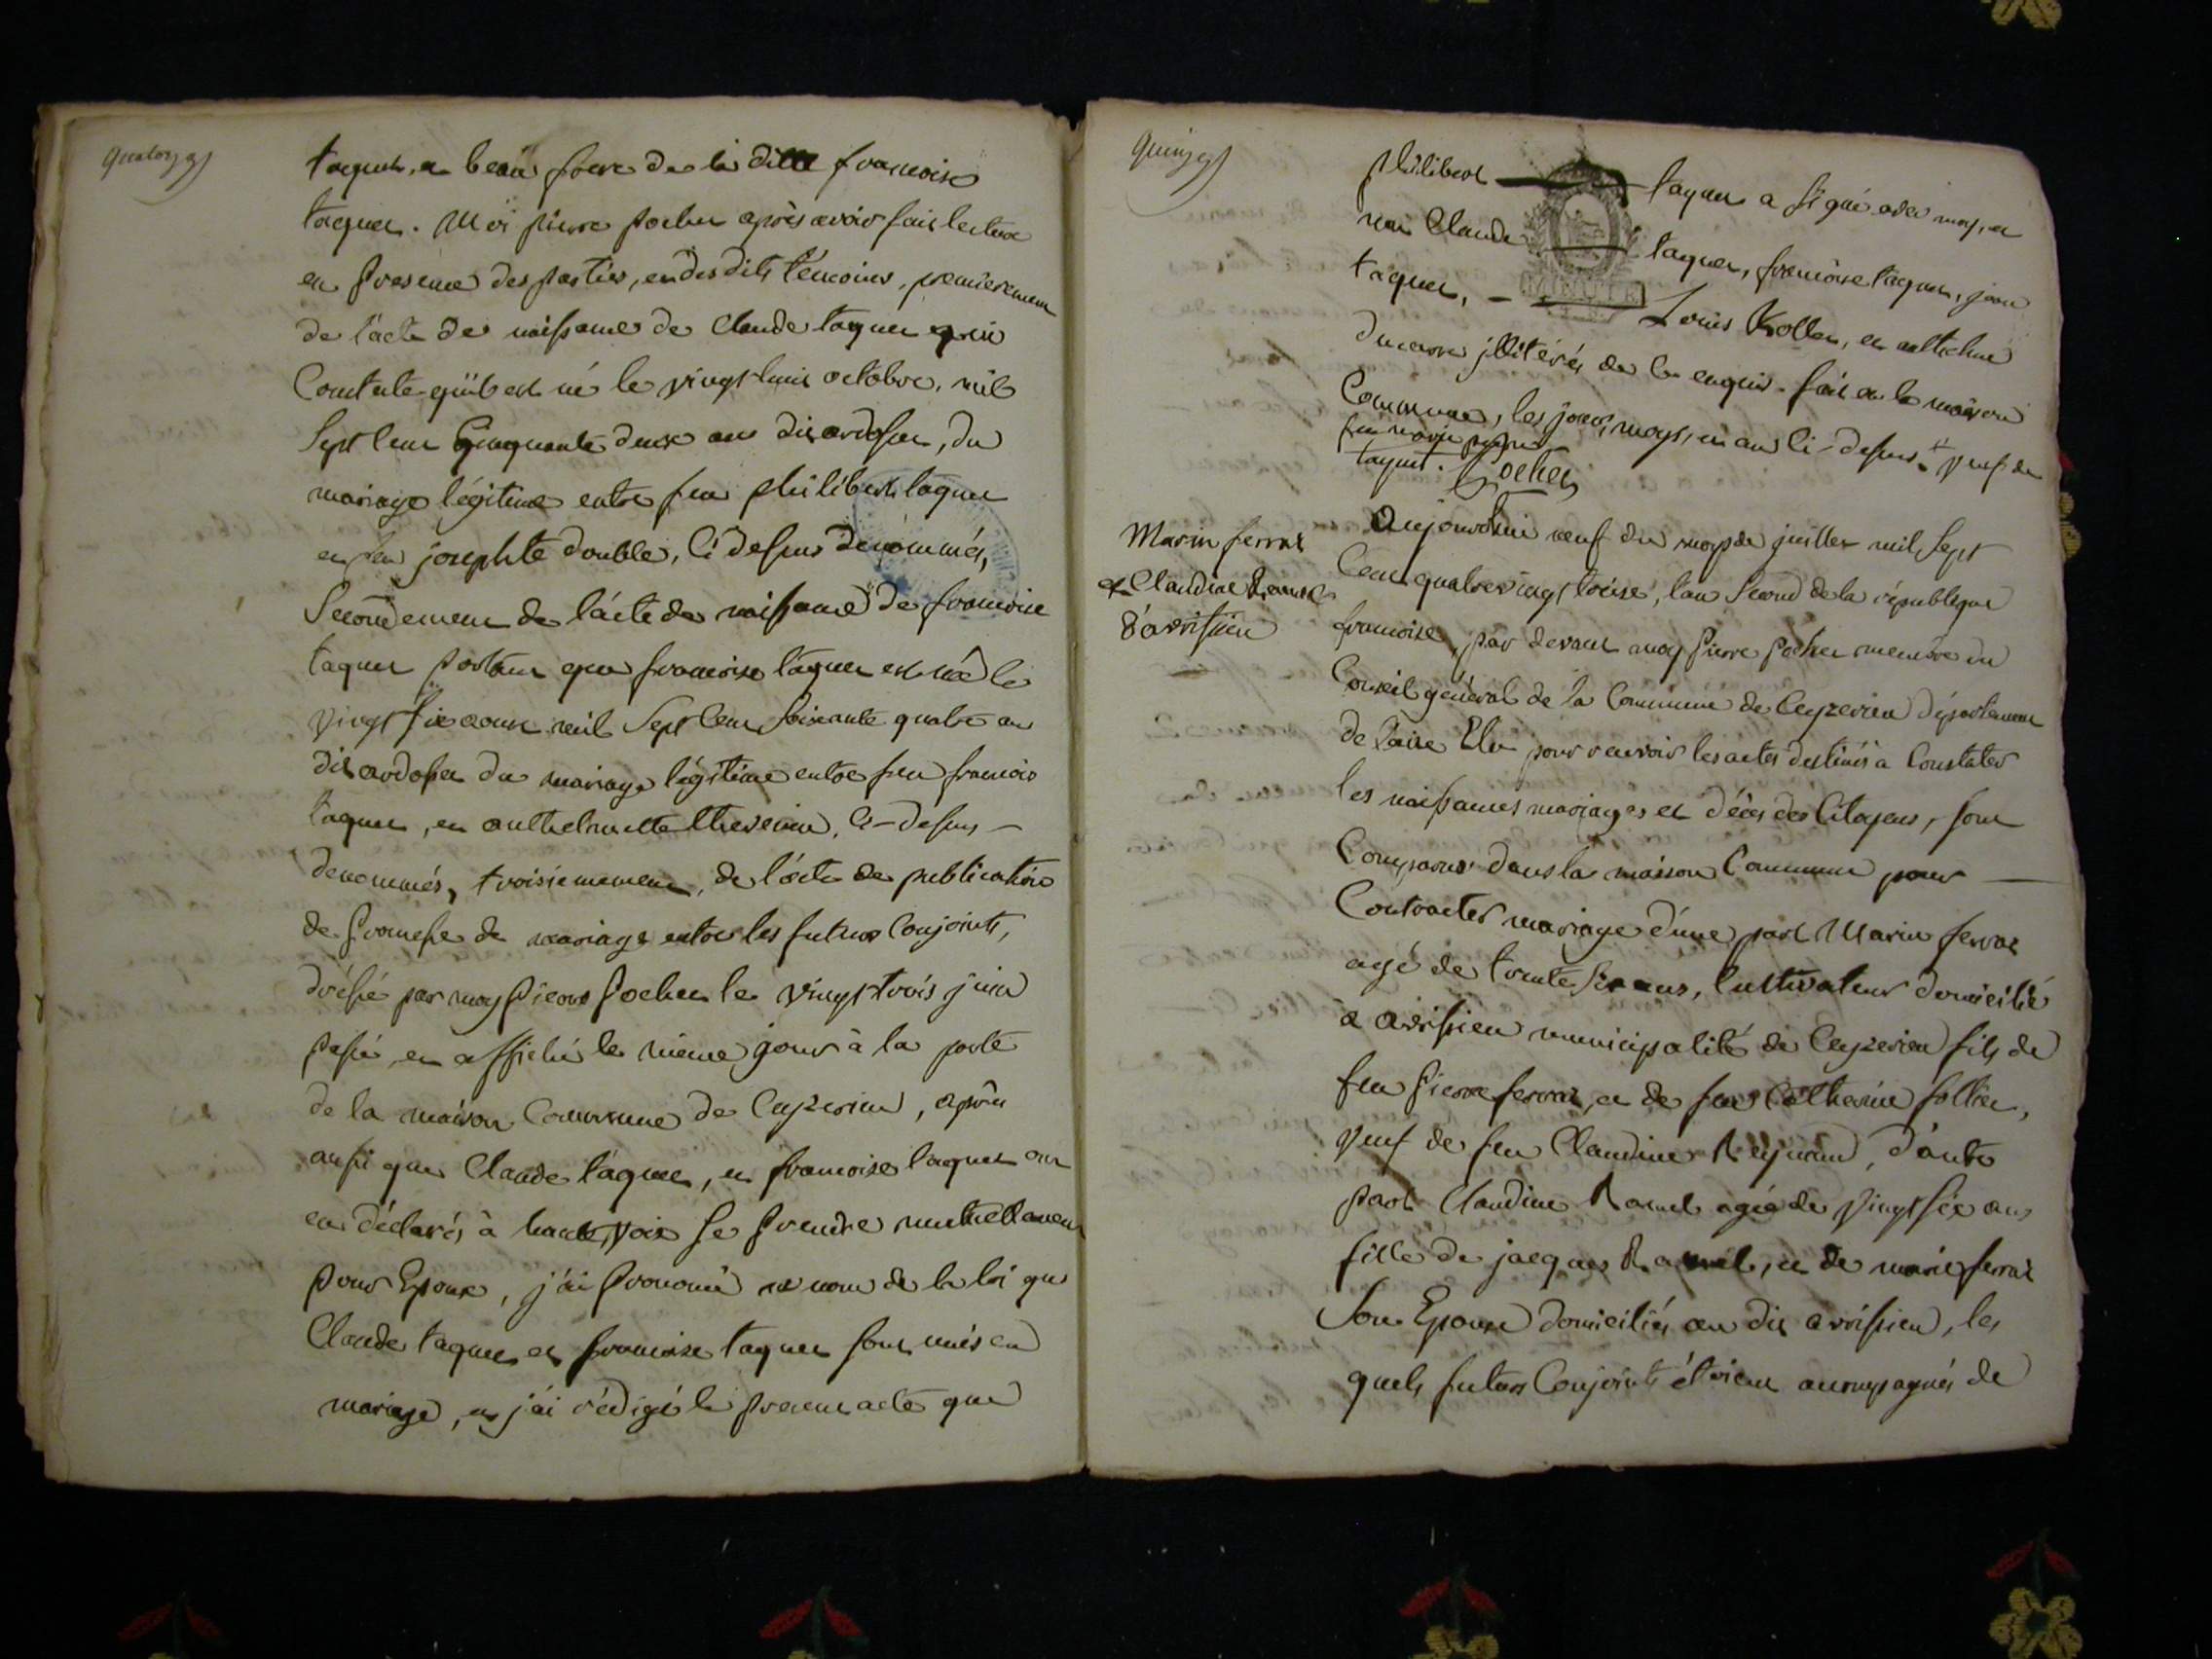 quatorze
taquet, et beau frere de la ditte francoise
taquet. Moi pierre pochet après avoir fait lecture
en presence des parties, et des dits témoins, premierement
de l'acte de naissance de Claude taquet qui
Constate qu'il est né le vingt huit octobre, mil
Sept Cent Cinquante deux au dit ardosset, du
mariage légitime entre feu philibert taquet
et feu josephte double, Ci dessus dénommés,
Secondement de l'acte de naissance de francoise
taquet portant que francoise taquet est née le
vingt six aoust mil Sept Cent Soixante quatre au
dit ardosset du mariage légitime entre feu francois
taquet, et anthelmette thevenin, Ci-dessus -
denommés, troisiemement, de l'acte de publication
de promesse de mariage entre les futurs Conjoints,
dréssé par moy pierre pochet le vingt trois juin
passé, et affiché le même jour à la porte
de la maison Commune de Ceyzerieu, après
aussi que Claude taquet, et francoise taquet ont
eu déclarés à haute voix Se prendre mutuellement
pour Epoux, j'ai prononcé au nom de la loi que
Claude taquet et francoise taquet sont unis en
mariage, et j'ai rédigé le present acte que
quinze
philibert taquet a signé avec moy, et
non Claude taquet, francoise taquet, jean
taquet, - Louis Rollet, et anthelme
ducarre illitérés de ce enquis. fait en la maison
Commune, les jour, moys, et an Ci-dessus. + veuf de
feu marie
taquet. Pochet
Marin ferraz
et Claudine Ramel
d'avrissieu
Aujourdhui neuf du moys de juillet mil Sept
Cent quatre vingt treise, l'an Second de la république
francoise, par devant moy pierre pochet membre du
Conseil général de la Commune de Ceyzerieu département
de l'ain Elu pour recevoir les actes destinés à Constater
les naissances mariages et décès des Citoyens, sont
Comparus dans la maison Commune pour -
Contracter mariage d'une part Marin ferraz
agé de trente Six ans, Cultivateur domicilié
à avrissieu municipalité de Ceyzerieu fils de
feu pierre ferraz, et de feue Catherine
veuf de feu Claudine d'autre
part Claudine Ramel agée de vingt six ans
fille de jacques Ramel, et de marie ferraz
Son Epouse domiciliés au dit avrissieu, les
quels futurs Conjoints étoient accompagnés de